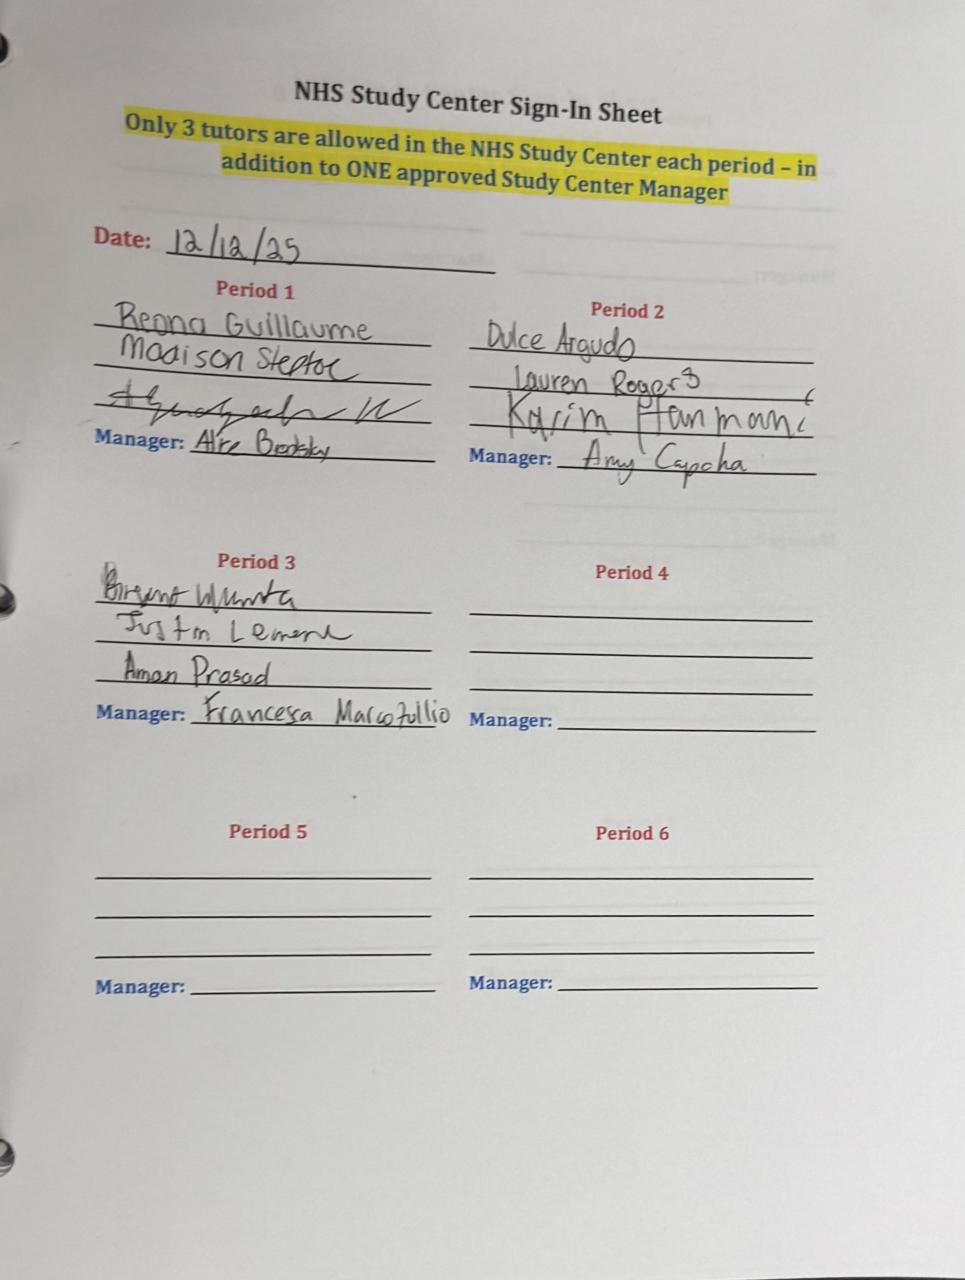 NHS Study Center Sign-In Sheet
Only 3 tutors are allowed in the NHS Study Center each period – in
addition to ONE approved Study Center Manager
Date: 12/12/25
Period 1
Reona Guillaume
Madison Steptoe
Manager:
Period 2
Dulce Argudo
Lauren Rogers
Karim Hanmani
Manager: Amy Capcha
Period 3
Justin Lement
Aman Prasad
Manager: Francesca Marcotullio
Period 4
Manager:
Period 5
Manager:
Period 6
Manager: